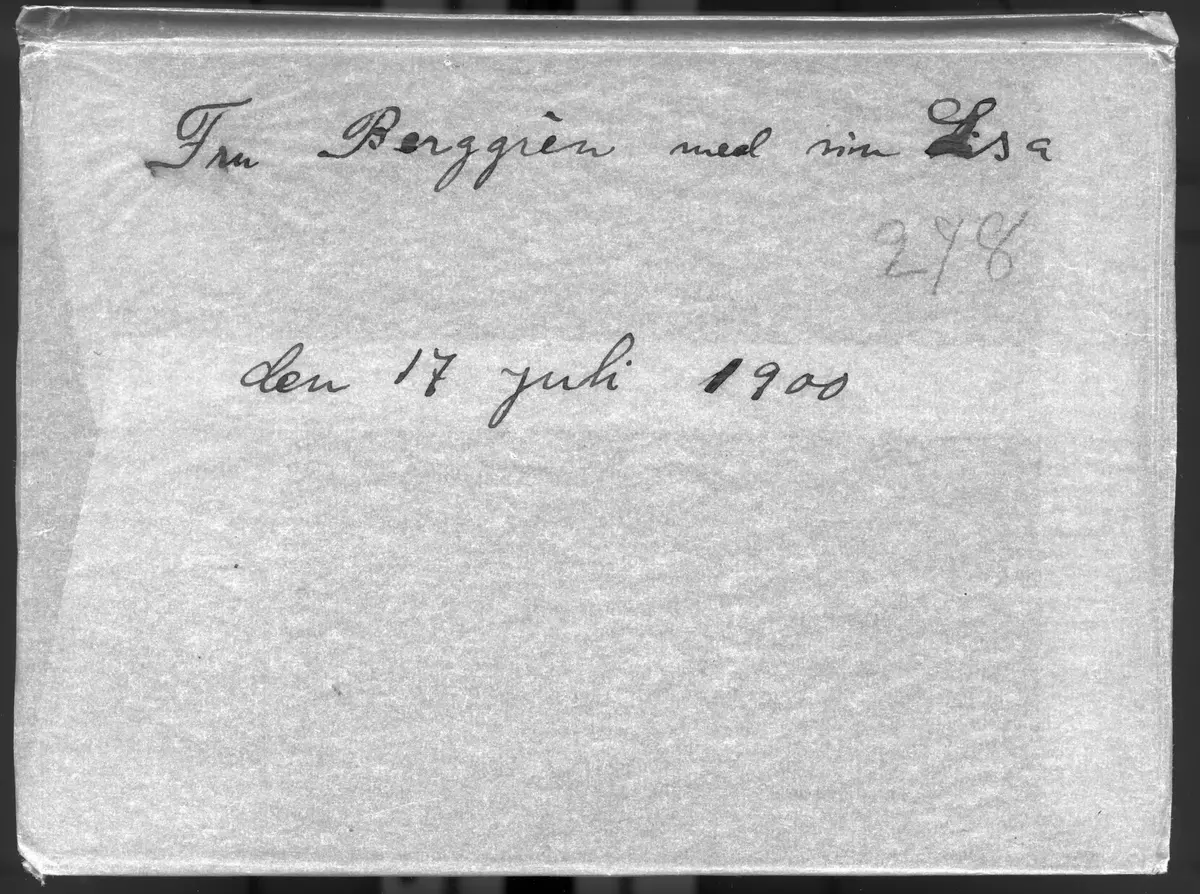 Fru Berggrèn med sin Lisa
278
den 17 juli 1900